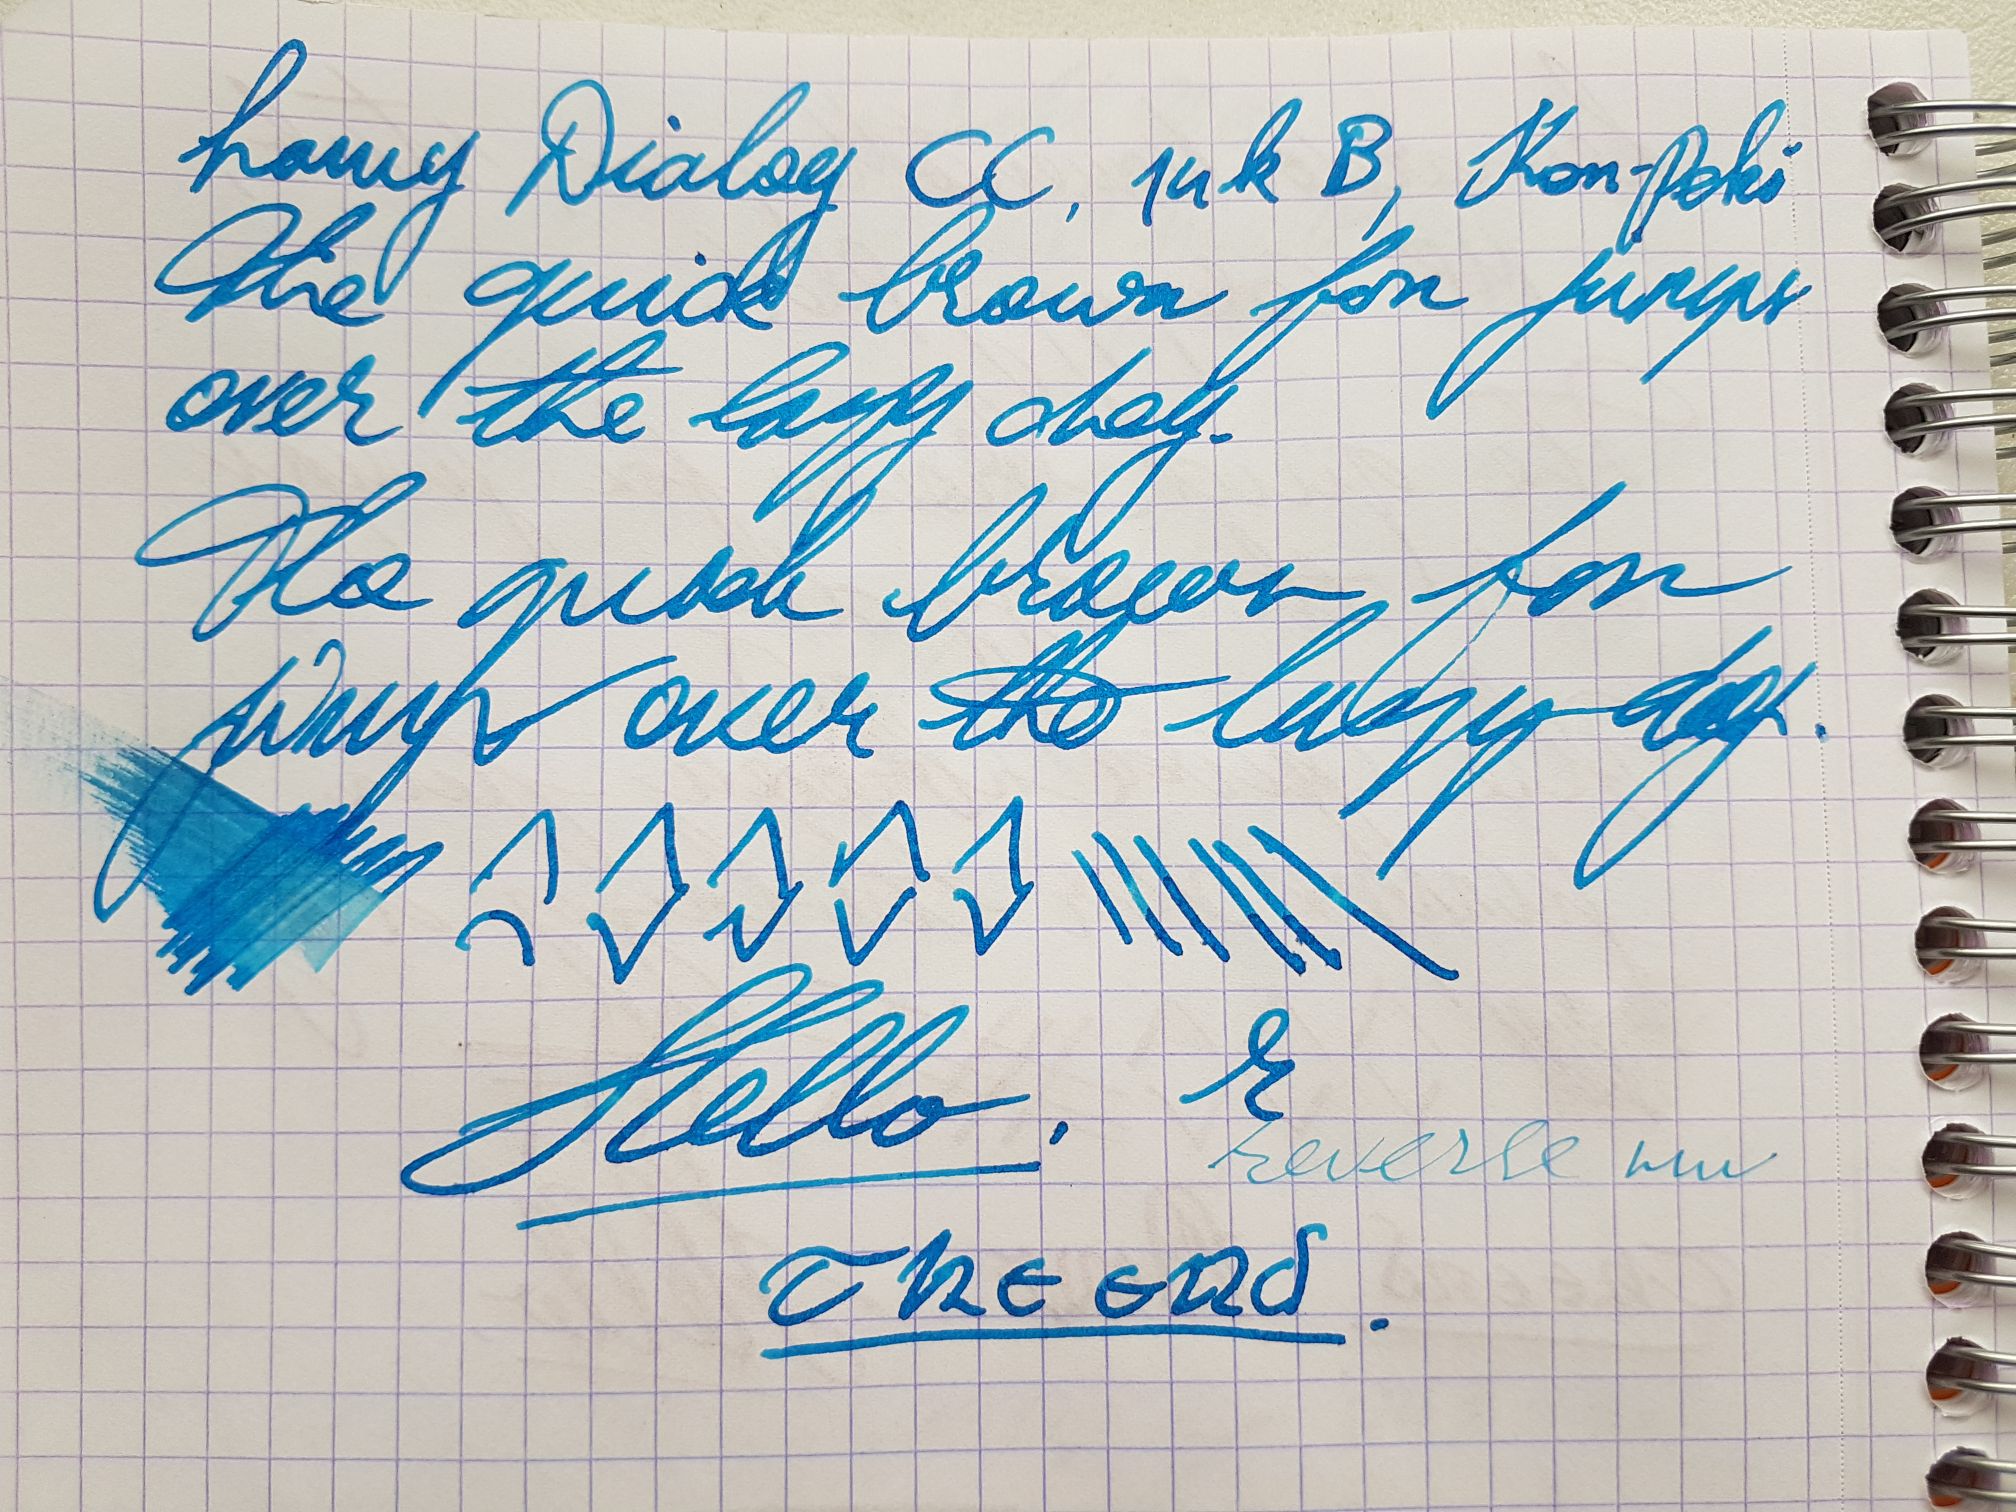 Lamy Dialog CC, 14k B, Kon-Peki
The quick brown fox jumps
over the lazy dog.
The quick brown fox
jumps over the lazy dog.
Hello.
reverse
The End.